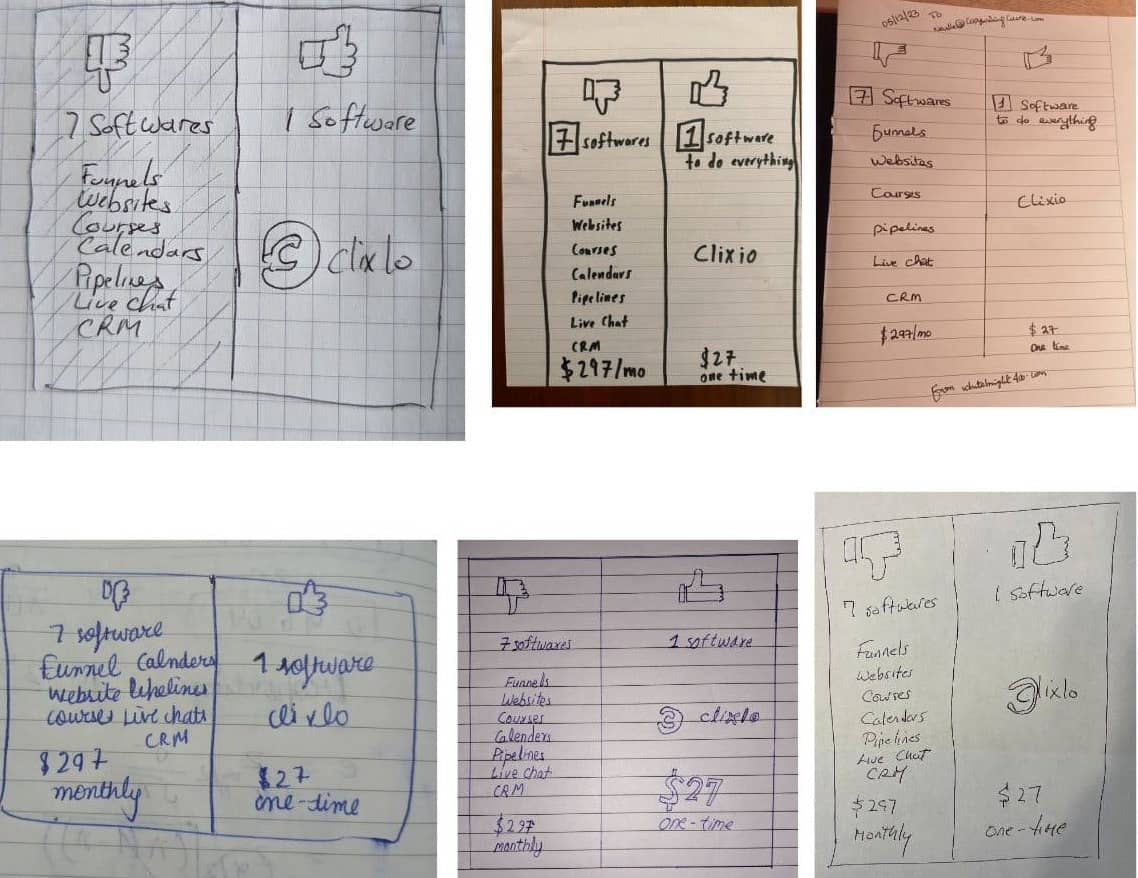 7 Softwares
Funnels
Websites
Courses
Calendars
Pipelines
Live chat
CRM
1 Software
C clixlo
7 softwares
Funnels
Websites
Courses
Calendars
Pipelines
Live Chat
CRM
$297/mo
1 software
to do everything
Clixio
$27
one time
05/12/23 To
7 Softwares
Funnels
Websites
Courses
pipelines
Live chat
CRM
$297/mo
1 Software
to do everything
Clixio
$27
One time
from
7 software
funnel Calnders
website
courses Live chats
CRM
$297
monthly
1 software
clixlo
$27
one-time
7 softwares
Funnels
Websites
Courses
Calenders
Pipelines
Live chat
CRM
$297
monthly
1 software
clixlo
$27
one-time
7 softwares
Funnels
Websites
Courses
Calenders
Pipelines
Live Chat
CRM
$297
Monthly
1 software
Clixlo
$27
One-time